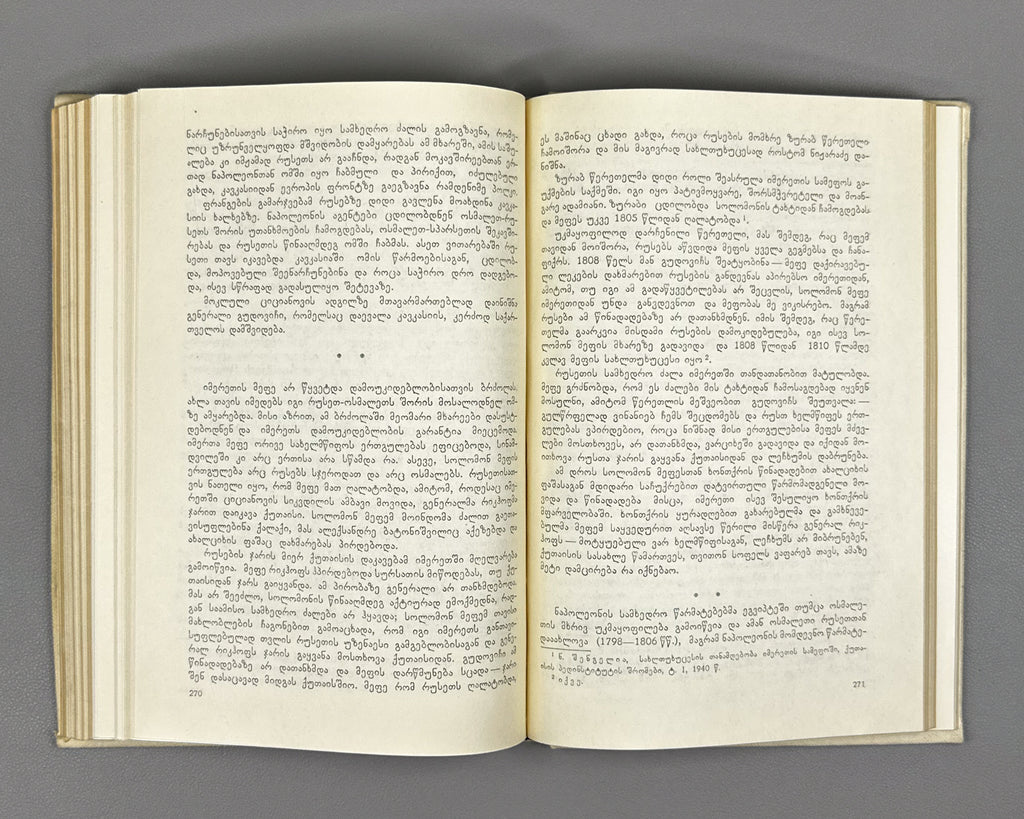 ნარჩუნებისათვის საჭირო იყო სამხედრო ძალის გამოგზავნა, რომე-
ლიც უზრუნველყოფდა მშვიდობის დამყარებას ამ მხარეში, ამის საშუ-
ალება კი იმჟამად რუსეთს არ გააჩნდა, რადგან მოკავშირეებთან ერ-
თად ნაპოლეონთან ომში იყო ჩაბმული და პირიქით, იძულებული
გახდა, კავკასიიდან ევროპის ფრონტზე გაეგზავნა რამდენიმე პოლკი.
ფრანგების გამარჯვებამ რუსებზე დიდი გავლენა მოახდინა კავკა-
სიის ხალხებზე. ნაპოლეონის აგენტები ცდილობდნენ ოსმალეთ-რუ-
სეთს შორის უთანხმოების ჩამოგდებას, ოსმალეთ-სპარსეთის შეკავში-
რებას და რუსეთის წინააღმდეგ ომში ჩაბმას. ასეთ ვითარებაში რუ-
სეთი თავს იკავებდა კავკასიაში ომის წარმოებისაგან, ცდილობ-
და, მოპოვებული შეენარჩუნებინა და როცა საჭირო დრო დადგებო-
და, ისევ სწრაფად გადასულიყო შეტევაზე.
მოკლული ციციანოვის ადგილზე მთავარმართებლად დაინიშნა
გენერალი გუდოვიჩი, რომელსაც დაევალა კავკასიის, კერძოდ საქარ-
თველოს დამშვიდება.
• •
იმერეთის მეფე არ წყვეტდა დამოუკიდებლობისათვის ბრძოლას.
ახლა თავის იმედებს იგი რუსეთ-ოსმალეთს შორის მოსალოდნელ ომ-
ზე ამყარებდა. მისი აზრით, ამ ბრძოლაში მეომარი მხარეები დასუსტ-
დებოდნენ და იმერეთს დამოუკიდებლობის გარანტია მიეცემოდა.
იმერთა მეფე ორივე სახელმწიფოს ერთგულებას ეფიცებოდა, სინამ-
დვილეში კი არც ერთისა არა სწამდა რა. ასევე, სოლომონ მეფის
ერთგულება არც რუსებს სჯეროდათ და არც ოსმალებს. რუსეთისათ-
ვის ნათელი იყო, რომ მეფე მათ ღალატობდა, ამიტომ, როდესაც იმე-
რეთში ციციანოვის სიკვდილის ამბავი მოვიდა, გენერალმა რიკჰოფმა
ჯარით დაიკავა ქუთაისი. სოლომონ მეფემ მოინდომა ძალით გაეთა-
ვისუფლებინა ქალაქი, მას ალექსანდრე ბატონიშვილიც აქეზებდა და
ახალციხის ფაშაც დახმარებას პირდებოდა.
რუსების ჯარის მიერ ქუთაისის დაკავებამ იმერეთში მღელვარება
გამოიწვია. მეფე რიკჰოფს ჰპირდებოდა სურსათის მიწოდებას, თუ ქუ-
თაისიდან ჯარს გაიყვანდა. ამ პირობაზე გენერალი არ თანხმდებოდა.
მას არ შეეძლო, სოლომონის წინააღმდეგ აქტიურად ემოქმედნა, რად-
გან საამისო სამხედრო ძალები არ ჰყავდა; სოლომონ მეფემ თავისი
მახლობლების ჩაგონებით გამოაცხადა, რომ იგი იმერეთს განთავი-
სუფლებულად თვლის რუსეთის უზენაესი გამგებლობისაგან და გენე-
რალ რიკჰოფს ჯარის გაყვანა მოსთხოვა ქუთაისიდან. გუდოვიჩი ამ
წინადადებაზე არ დათანხმდა და მეფის დარწმუნება სცადა — ჯარი
შენ დასაცავად მიდგას ქუთაისშიო. მეფე რომ რუსეთს ღალატობდა,
270
ეს მაშინაც ცხადი გახდა, როცა რუსების მომხრე ზურაბ წერეთელი
ჩამოიშორა და მის მაგივრად სახლთუხუცესად როსტომ ნიჟარაძე და-
ნიშნა.
ზურაბ წერეთელმა დიდი როლი შეასრულა იმერეთის სამეფოს გა-
უქმების საქმეში. იგი იყო პატივმოყვარე, შორსმჭვრეტელი და მოან-
გარე ადამიანი. ზურაბი ცდილობდა სოლომონის ტახტიდან ჩამოგდებას
და მეფეს უკვე 1805 წლიდან ღალატობდა ¹.
უკმაყოფილოდ დარჩენილი წერეთელი, მას შემდეგ, რაც მეფემ
თავიდან მოიშორა, რუსებს აწვდიდა მეფის ყველა გეგმებსა და ჩანა-
ფიქრს. 1808 წელს მან გუდოვიჩს შეატყობინა — მეფე დაქირავებუ-
ლი ლეკების დახმარებით რუსების განდევნას აპირებსო იმერეთიდან,
ამიტომ, თუ იგი ამ გადაწყვეტილებას არ შეცვლის, სოლომონ მეფე
იმერეთიდან უნდა განვდევნოთ და მეფობას მე ვიკისრებო. მაგრამ
რუსები ამ წინადადებაზე არ დათანხმდნენ. იმის შემდეგ, რაც წერე-
თელმა გაარკვია მისდამი რუსების დამოკიდებულება, იგი ისევ სო-
ლომონ მეფის მხარეზე გადავიდა და 1808 წლიდან 1810 წლამდე
კვლავ მეფის სახლთუხუცესი იყო ².
რუსეთის სამხედრო ძალა იმერეთში თანდათანობით მატულობდა.
მეფე გრძნობდა, რომ ეს ძალები მის ტახტიდან ჩამოსაგდებად იყვნენ
მოსულნი, ამიტომ წერეთლის მეშვეობით გუდოვიჩს შეუთვალა: —
გულწრფელად ვინანიებ ჩემს შეცდომებს და რუსთ ხელმწიფეს ერთ-
გულებას ვპირდებიო, როცა ნიშნად მისი ერთგულებისა მეფეს მძევ-
ლები მოსთხოვეს, არ დათანხმდა, ვარციხეში გადავიდა და იქიდან მო-
ითხოვა რუსთა ჯარის გაყვანა ქუთაისიდან და ლეჩხუმის დაბრუნება.
ამ დროს სოლომონ მეფესთან ხონთქრის წინადადებით ახალციხის
ფაშასაგან მდიდარი საჩუქრებით დატვირთული წარმომადგენელი მო-
ვიდა და წინადადება მისცა, იმერეთი ისევ შესულიყო ხონთქრის
მფარველობაში. ხონთქრის ყურადღებით გახარებულმა და გამხნევე-
ბულმა მეფემ საყვედურით აღსავსე წერილი მისწერა გენერალ რიკ-
ჰოფს — მოტყუებული ვარ ხელმწიფისაგან, ლეჩხუმს არ მიბრუნებენ,
ქუთაისის სასახლე წამართვეს, თვითონ სოფელს ვაფარებ თავს, ამაზე
მეტი დამცირება რა იქნებაო.
• •
ნაპოლეონის სამხედრო წარმატებებმა ეგვიპტეში თუმცა ოსმალე-
თის მხრივ უკმაყოფილება გამოიწვია და ამან ოსმალეთი რუსეთთან
დააახლოვა (1798—1806 წწ.), მაგრამ ნაპოლეონის მომდევნო წარმატე-
¹ ნ. შენგელია, სახლთუხუცესის თანამდებობა იმერეთის სამეფოში, ქუთა-
ისის პედინსტიტუტის შრომები, ტ. 1, 1940 წ.
² იქვე.
271